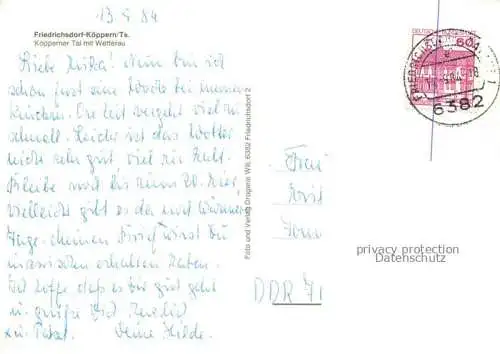 13.5.84
Friedrichsdorf-Köppern/Ts.
Köpperner Tal mit Wetterau
Liebe Erika! Nun bin ich
schon fast eine Woche bei meinen
Kindern. Die Zeit vergeht viel zu
schnell. Leider ist das Wetter
nicht sehr gut viel zu kalt.
Bleibe noch bis zum 20. Mai,
vielleicht gibt es da noch wärmere
Tage. Meinen Brief wirst Du
inzwischen erhalten haben.
Ich hoffe daß es Dir gut geht
u. grüße Dich herzlich
Deine Hilde.
Foto und Verlag Drogerie Will, 6382 Friedrichsdorf 2
DEUTSCHE BUNDESPOST
60
FRIEDRICHSDORF
6382
Frau
DDR 71
privacy protection
Datenschutz